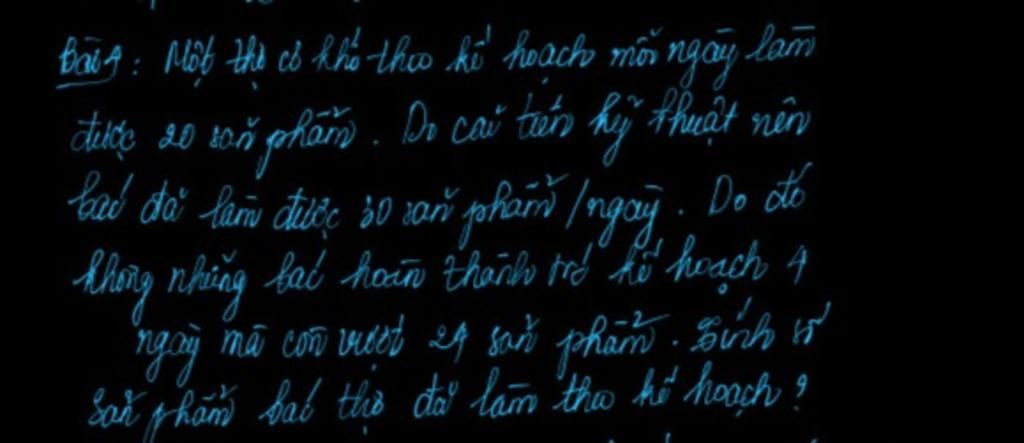 Bài 4: Một thợ cơ khí theo kế hoạch mỗi ngày làm
được 20 sản phẩm. Do cải tiến kỹ thuật nên
bác đã làm được 30 sản phẩm/ngày. Do đó
không những bác hoàn thành trớ kế hoạch 4
ngày mà còn vượt 24 sản phẩm. Tính số
sản phẩm bác thợ đã làm theo kế hoạch?